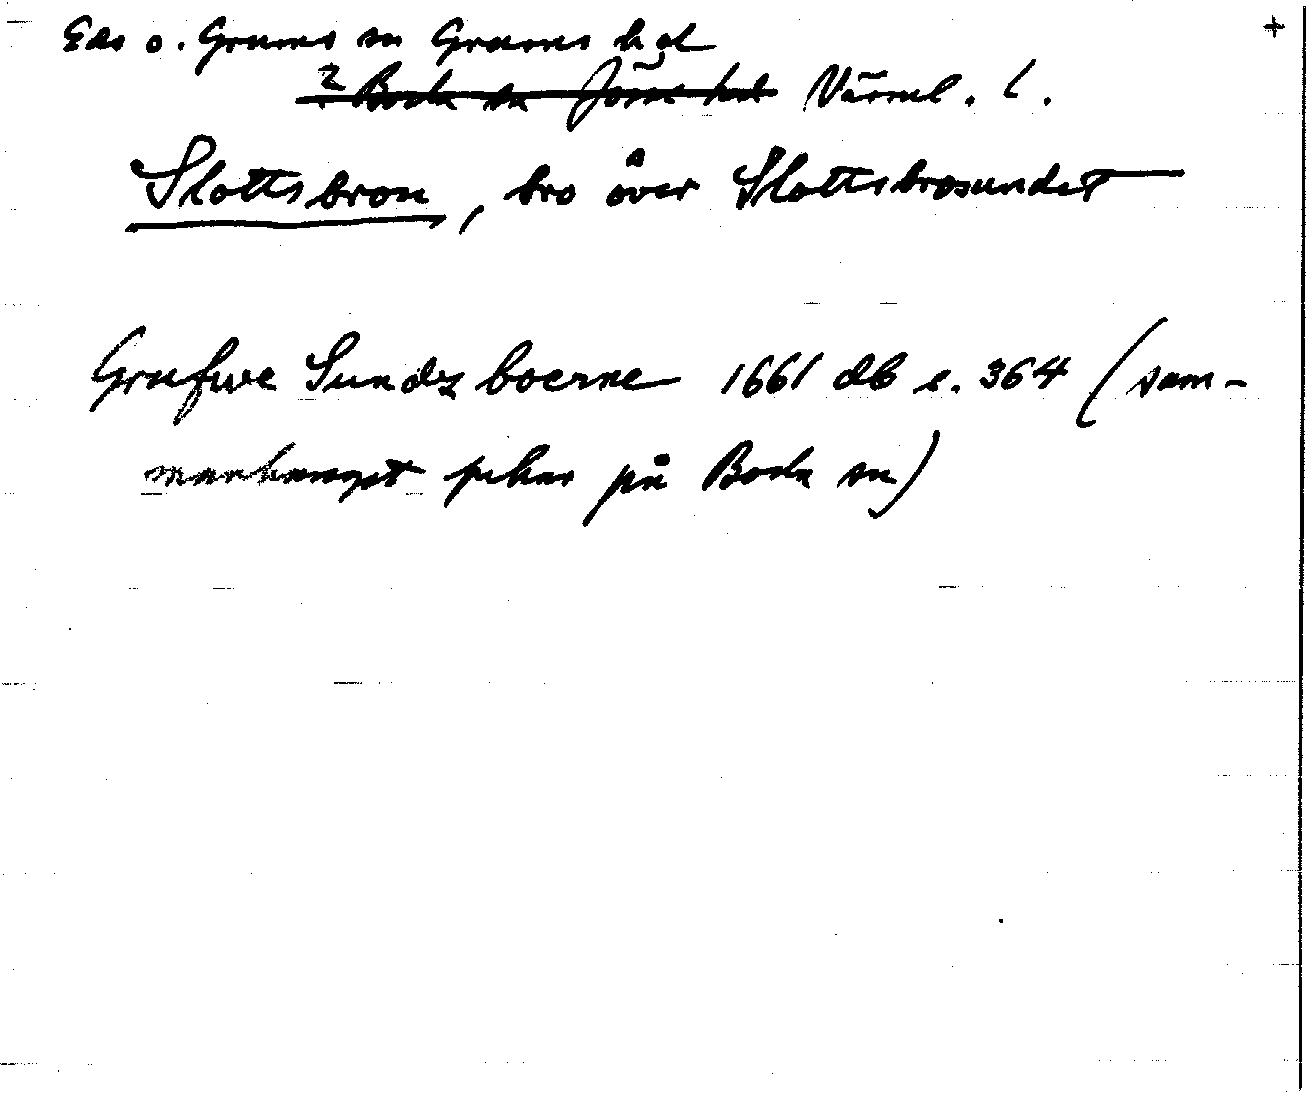 Eds o. Grums sn Grums hd +
? Boda sn Jösse hd Värml. l.
Slottsbron, bro över Slottsbrosundet
Grufwe Sundz boerne 1661 db s. 364 (sam-
manhanget pekar på Boda sn)